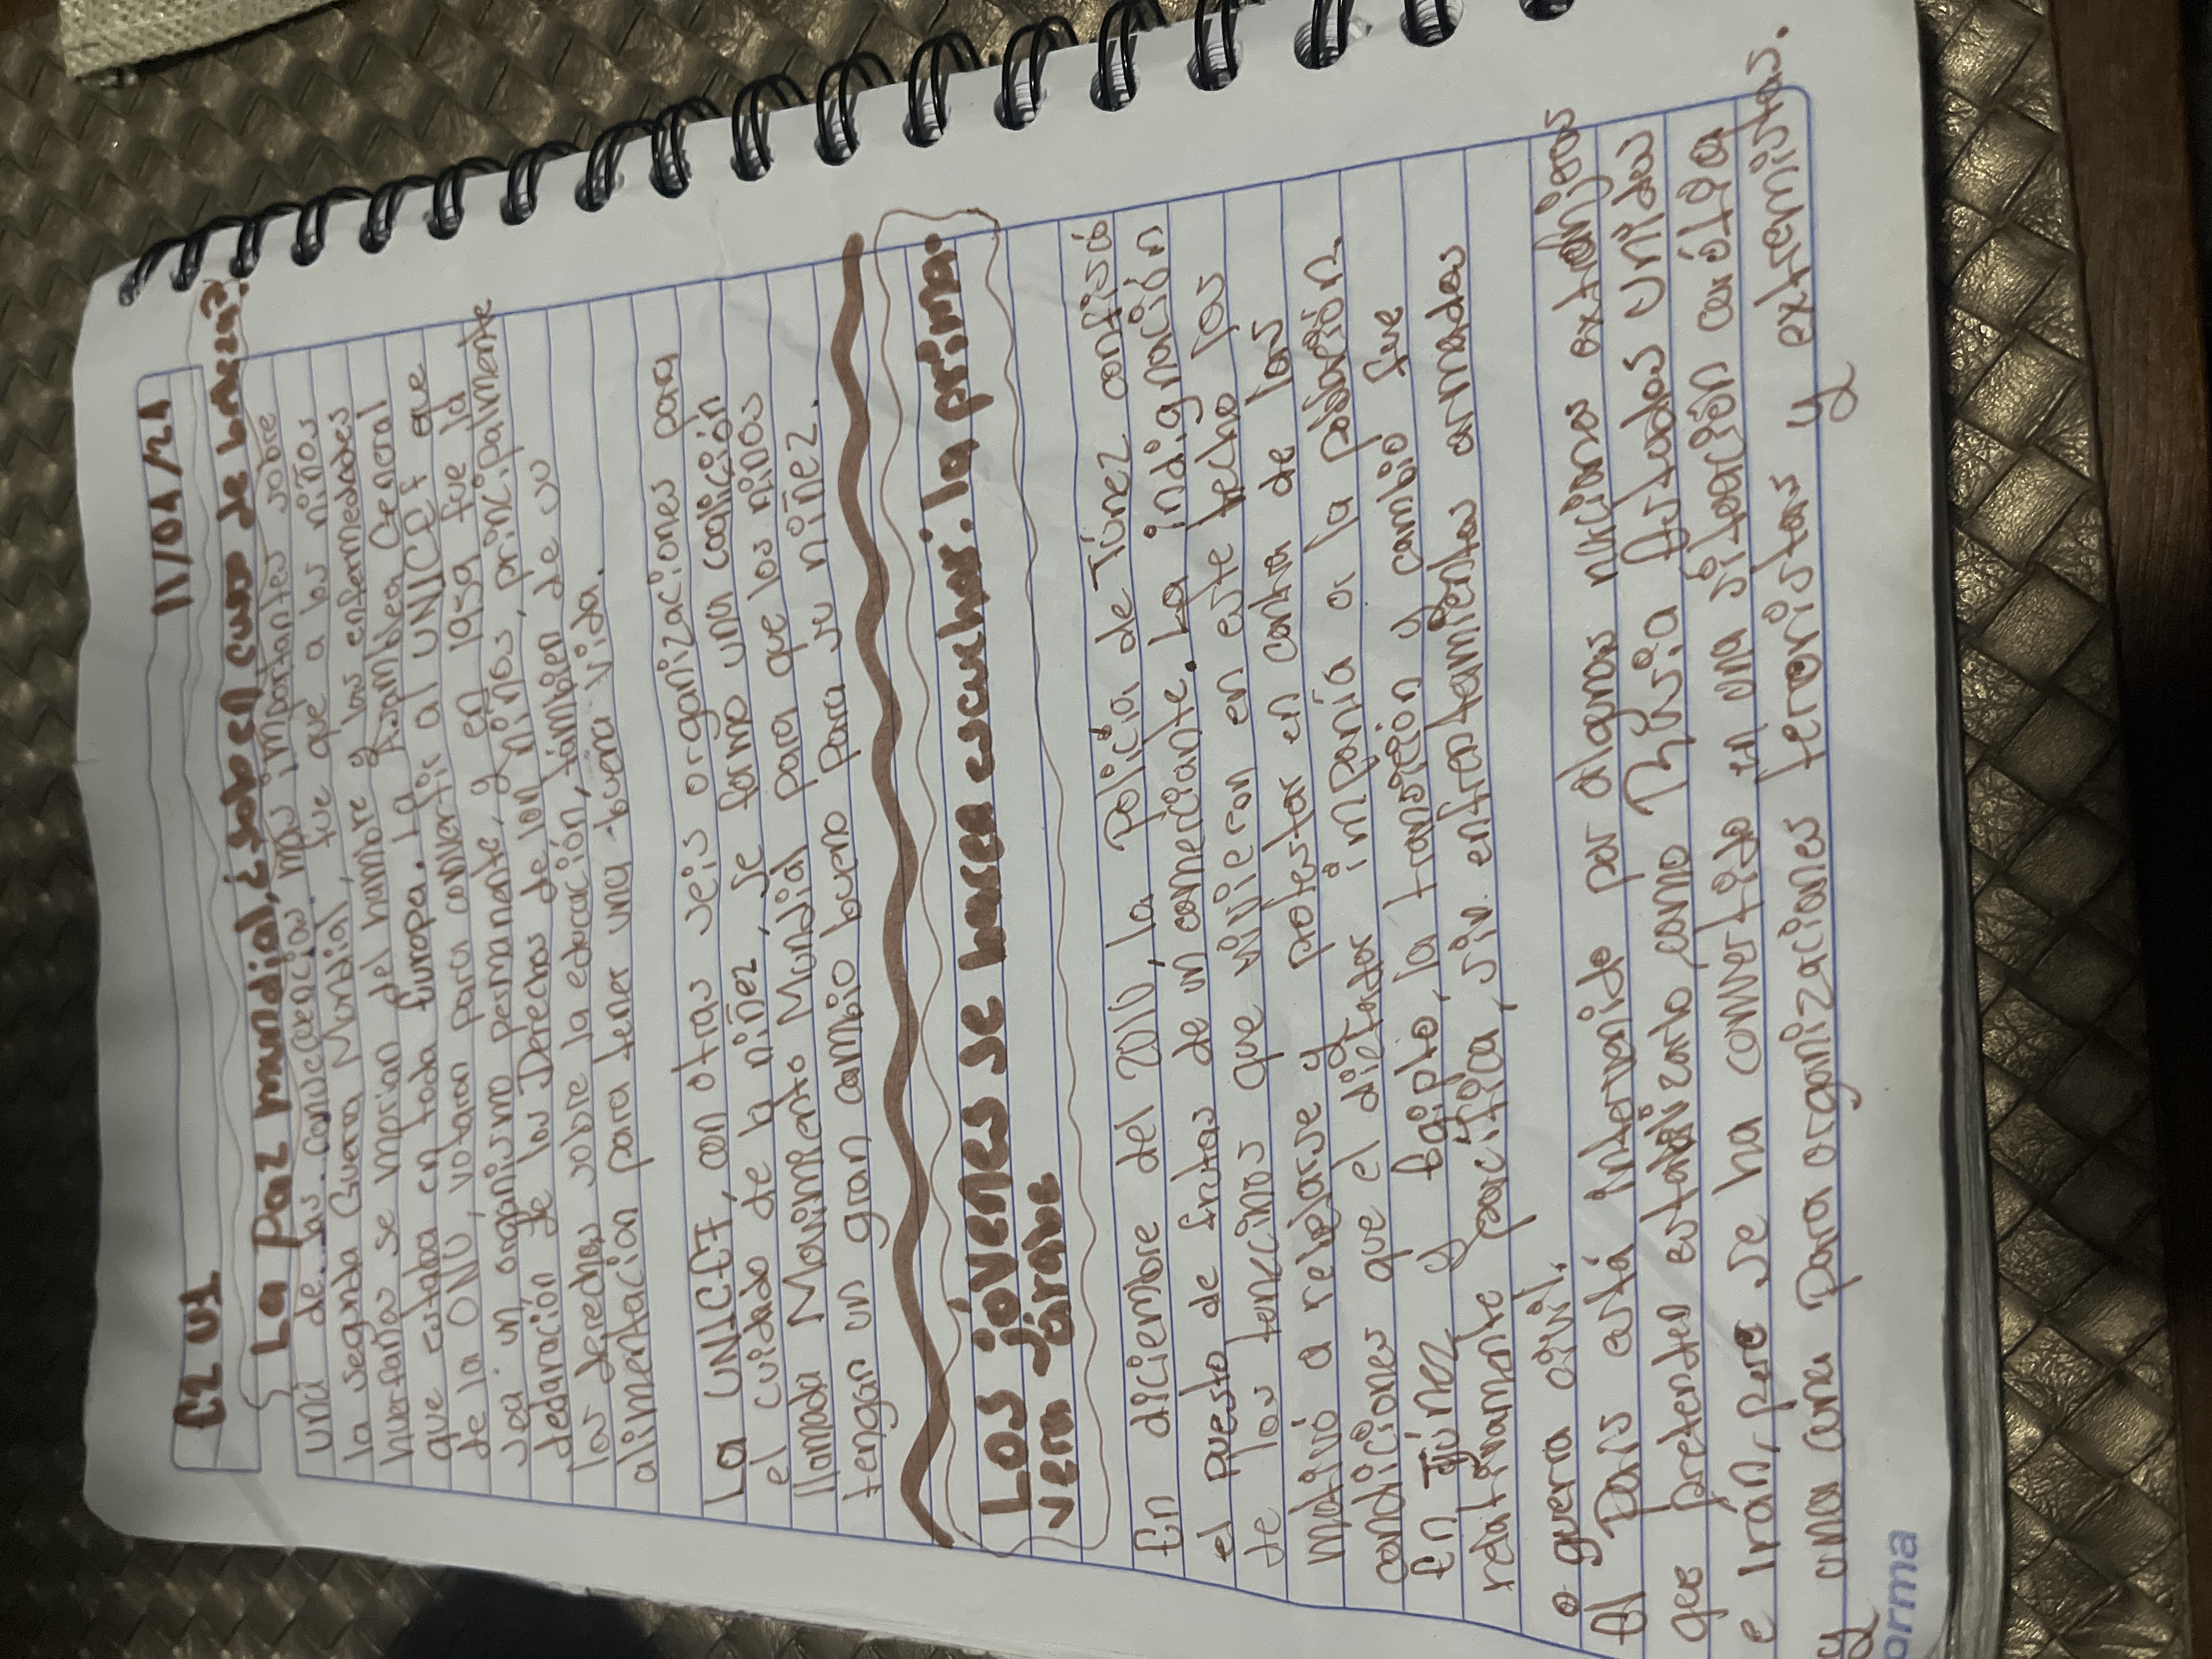 C2 U1 11/01/21
La Paz mundial, ¿solo en curso de belleza?
una de las consecuencias más importantes sobre
la segunda Guerra Mundial, fue que a los niños
huerfaños se morian del hambre y las enfermedades
que estaba en toda Europa. La Asamblea General
de la ONU, votaron para convertir al UNICEF que
sea un organismo permanente, y en 1959 fue la
declaración de los Derechos de lon niños, principalmente
los derechos sobre la educación, también de su
alimentacion para tener una buena vida.
La UNICEF, con otras seis organizaciones para
el cuidado de la niñez, se formo una coalición
llamada Movimiento Mundial para que los niños
tengan un gran cambio bueno para su niñez.
Los jóvenes se hacen escuchar: la prima-
vera árabe
En diciembre del 2010, la policía de Túnez confiscó
el puesto de frutas de un comerciante. La indignación
de los tencinos que vivieron en este hecho los
motivó a rebelarse y protestar en contra de las
condiciones que el dictador imponía a la población.
En Túnez y Egipto, la transición y cambio fue
relativamente pacífica, sin enfrentamientos armados
o guerra civil.
El País está intervenido por algunas naciones extranjeras
que pretenden estabilizarlo, como Rusia Estados Unidos
e Irán, pero se ha convertido en una situación caótica
y una cuna para organizaciones terroristas y extremistas.
orma